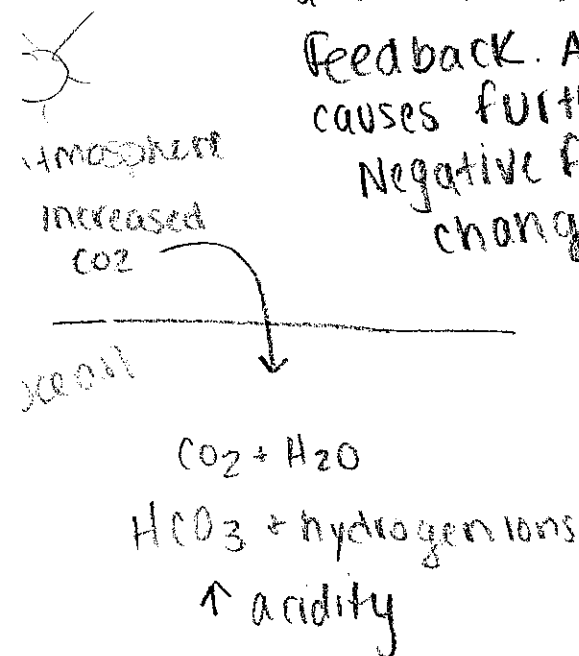 Feedback. A
causes furth
Negative f
chang
tmosphere
increased
CO2
ocean
CO2 + H2O
HCO3 + hydrogen ions
↑ acidity